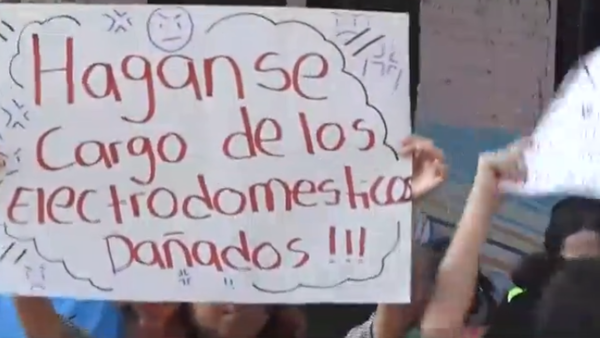 Haganse
Cargo de los
Electrodomesticos
Dañados !!!